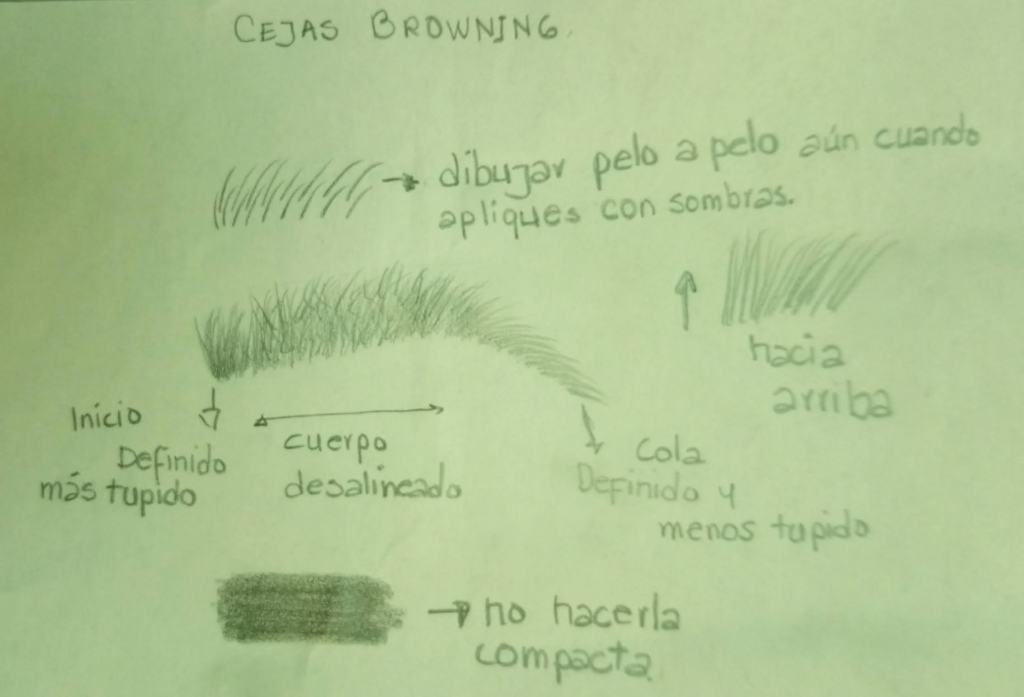 CEJAS BROWNING.
dibujar pelo a pelo aún cuando
apliques con sombras.
hacia
arriba
Inicio
Definido
más tupido
cuerpo
desalineado
Cola
Definido y
menos tupido
no hacerla
compacta